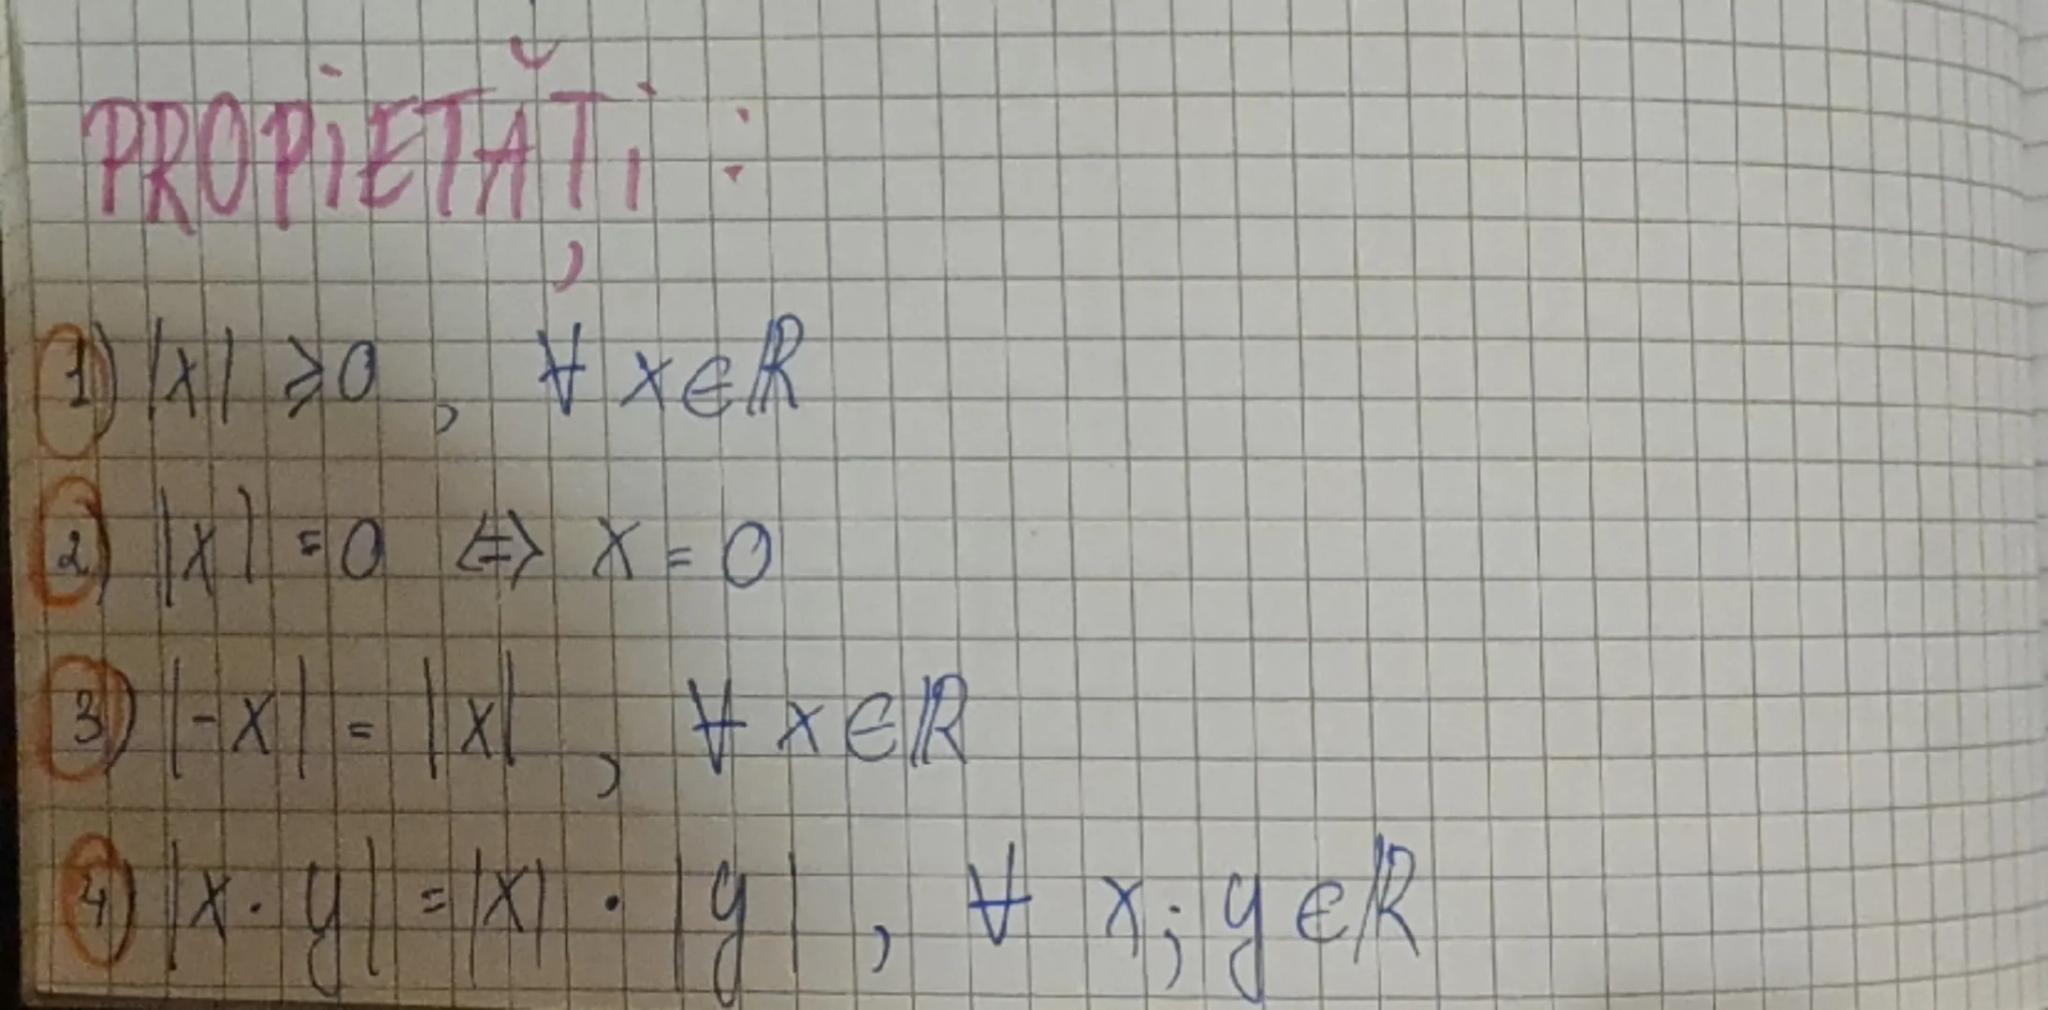 PROPiETĂȚi :
1) |x| ≥ 0 , ∀ x ∈ ℝ
2) |x| = 0 ⇔ x = 0
3) |-x| = |x| , ∀ x ∈ ℝ
4) |x · y| = |x| · |y| , ∀ x ; y ∈ ℝ